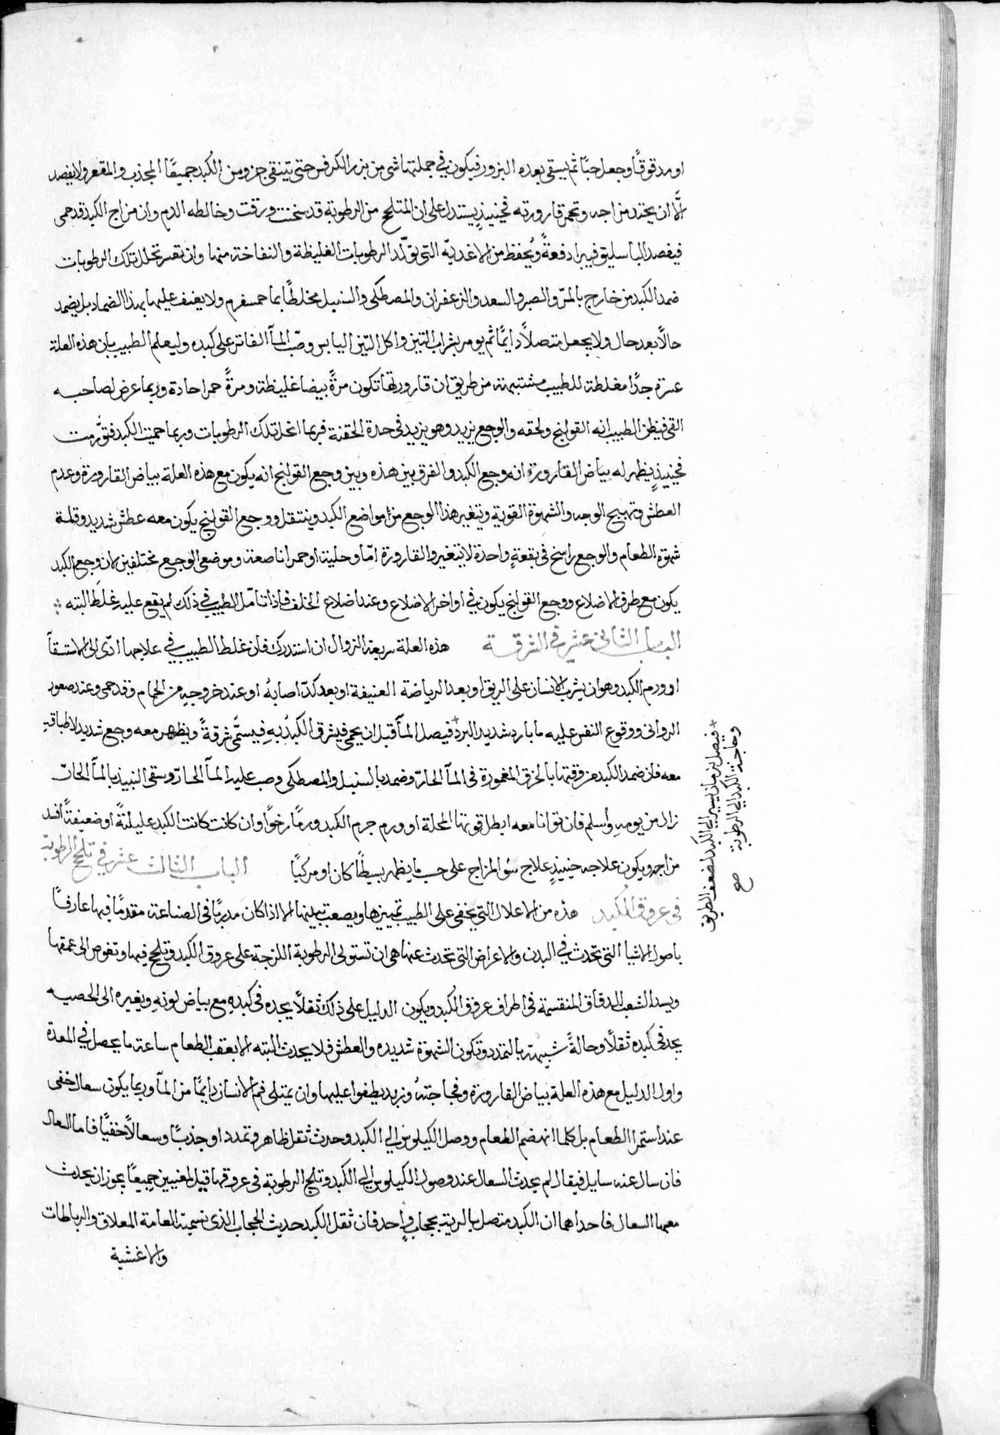 او مدقوقًا وجعل حبًا ثم يسقى بعده البزور فيكون في جملتها شي من بزر الكرفس حتى يتنقى جزو من الكبد جميعًا المحدب والمقعر ولا يفصد
الّا ان يحتد مزاجه وتحمر قارورته فحينيذٍ يستدل على ان المتلحج من الرطوبة قد سخنت ورقت وخالطه الدم وان مزاج الكبد قد حمى
فيفصد الباسليق فيبرا دفعةً ويُحفظ من الاغذيّه التي تولّد الرطوبات الغليظة والنفاخة منها وان تعسر تحلل تلك الرطوبات
ضمد الكبد من خارج بالمرّ والصبر والسعد والزعفران والمصطكى والسنبل مخلطًا بما حمسفرم ولا يعنف عليها بهذا الضماد بل يضمد
حالًا بعد حال ولا يجعل متصلًا دايمًا ثم يومر بشراب التين واكل التين اليابس وصبّ المآ الفاتر على كبده وليعلم الطبيب بان هذه العلة
عسرة جدًا مغلطة للطبيب مشتبهة من طريق ان قارورتها تكون مرةً بيضا غليظة ومرةً حمرا حادة وربما عرض لصاحبه
القي فيظن الطبيب انه القولنج ولحقه والوجع يزيد وهو يزيد في حدة الحقنة فربما انحلت تلك الرطوبات وربما حميت الكبد فتورّمت
فحينيذٍ يظهر له بياض القارورة انه وجع الكبد والفرق بين هذه وبين وجع القولنج انه يكون مع هذه العلة بياض القارورة وعدم
العطش وتهييج الوجه والشهوة القوية وتغير هذا الوجع من مواضع الكبد وينتقل ووجع القولنج يكون معه عطش شديد وقلة
شهوة الطعام والوجع راسخ في بقعةٍ واحدة لا تتغير والقارورة امّا وحلية او حمرا ناصعة وموضعى الوجع مختلفين لان وجع الكبد
يكون مع طرق الاضلاع ووجع القولنج يكون في اواخر الاضلاع وعند اضلاع الخلف فاذا تامّل الطبيب في ذلك لم يقع عليه غلط البته
الباب الثاني عشر في الشرقة هذه العلة سريعة الزوال ان استدرك فان غلط الطبيب في علاجها ادّى الى الاستسقآ
او ورم الكبد وهو ان يشرب الانسان على الريق او بعد الرياضة العنيفة او بعد كدّ اصابهُ او عند خروجه من الحمام وقد حمى وعند صعود
الرواني ووقوع النفس عليه ما بارد شديد البرد فيصل المآ قبل ان يحمى فيشرق الكبد به فيسمّى شرقةً ويظهر معه وجع شديد لا طاقة
معه فان ضمد الكبد من وقتها بالخرق المغموزة في المآ الحارّ وضمد بالسنبل والمصطكى وصب عليه المآ الحارّ وسقى النبيذ بالمآ الحارّ
زال من يومه واسلم فان توانا معه ابطل قوتها المحلة او ورم جرم الكبد ورمًا رخوًا وان كانت كانت الكبد عليلةً او ضعيفةً افسد
مزاجه ويكون علاجه حينيذٍ علاج سؤ المزاج على حسب ما يظهر بسيطًا كان او مركبًا الباب الثالث عشر في تلحج الرطوبة
في عروق الكبد هذه من الاعلال التي يخفى على الطبيب تمييزها ويصعب تبيّنها الا اذا كان مدربًا في الصناعة مقدمًا فيها عارفًا
باصول الاشيا التي تحدث في البدن والاعراض التي تحدث عنها هي ان تستولى الرطوبة اللزجة على عروق الكبد وتلحج فيها وتغوص الى عمقها
ويسد الشعب الدقاق المنقسمة في اطراف عروق الكبد ويكون الدليل على ذلك ثقلًا يجده في كبده مع بياض لونه ويغيره الى الحصيه
يجد في كبده ثقلًا وحالةً شبيهة بالتمدد وتكون الشهوة شديده والعطش فلا يحدث البته الا بعقب الطعام ساعة ما يحصل في المعدة
واول الدليل مع هذه العلة بياض القارورة وفجاجتهُ وزبد يطفوا عليها وان يمتلى فم الانسان دايمًا من المآ وربما يكون سعال خفى
عند استمرا الطعام بل كلما انهضم الطعام ووصل الكيلوس الى الكبد وحدث ثقل ظاهر وتمدد او جذبًا وسعالًا خفيًا فاما السعال
فان سال عنه سايل فيقال لم يحدث السعال عند وصول الكيلوس الى الكبد وتلحج الرطوبة في عروقها قيل لمعنيين جميعًا يجوز ان يحدث
معهما السعال فاحداهما ان الكبد متصل بالرية بحجابٍ واحد فان ثقل الكبد حديث الحجاب الذي تسميه العامة المعلاق والرباطات
والاغشية
فيصل بزمان يسير الى الكبد لضعف الطريق
وحاجة الكبد الى الرطوبة صح